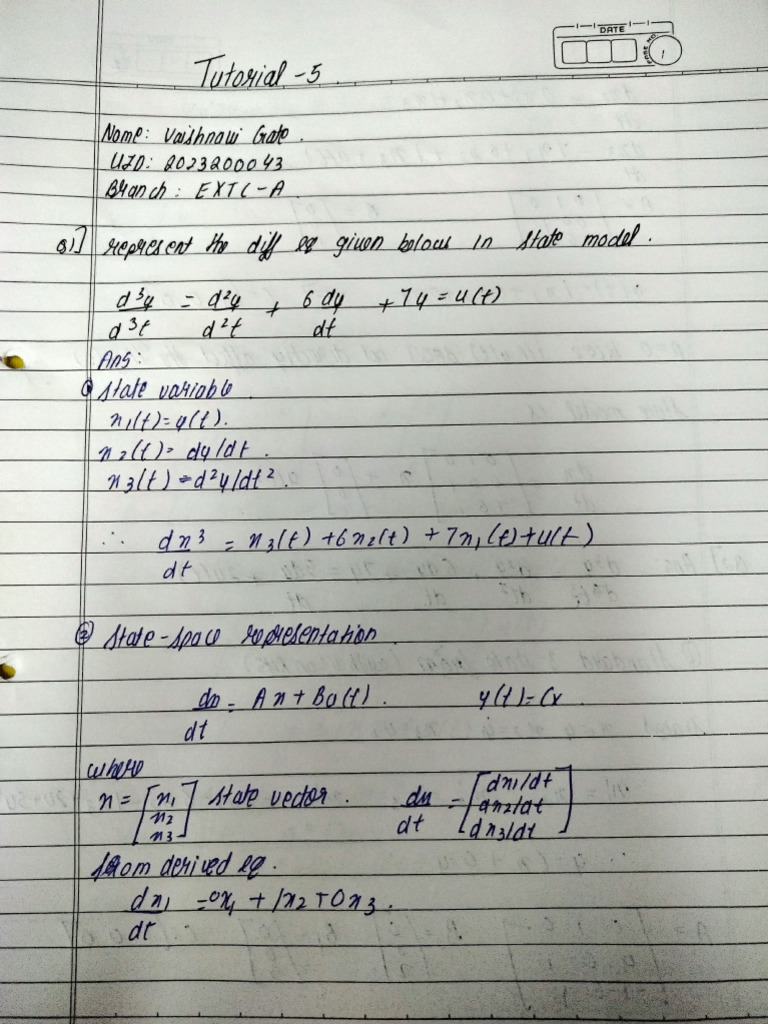 DATE
PAGE NO.
1
Tutorial - 5
Name: Vaishnavi Gate.
UID: 2023200043
Branch: EXTC-A
Q1] represent the diff eq given below in state model.
d³y/d³t = d²y/d²t + 6dy/dt + 7y = u(t)
Ans:
① State variable
x1(t)=y(t).
x2(t)= dy/dt.
x3(t) = d²y/dt².
∴ dx3/dt = x3(t) + 6x2(t) + 7x1(t) + u(t)
② State-space representation.
dx/dt = Ax + Bu(t). y(t) = Cx.
where
x = [x1 x2 x3] State vector. dx/dt = [dx1/dt dx2/dt dx3/dt]
from derived eq.
dx1/dt = 0x1 + 1x2 + 0x3.